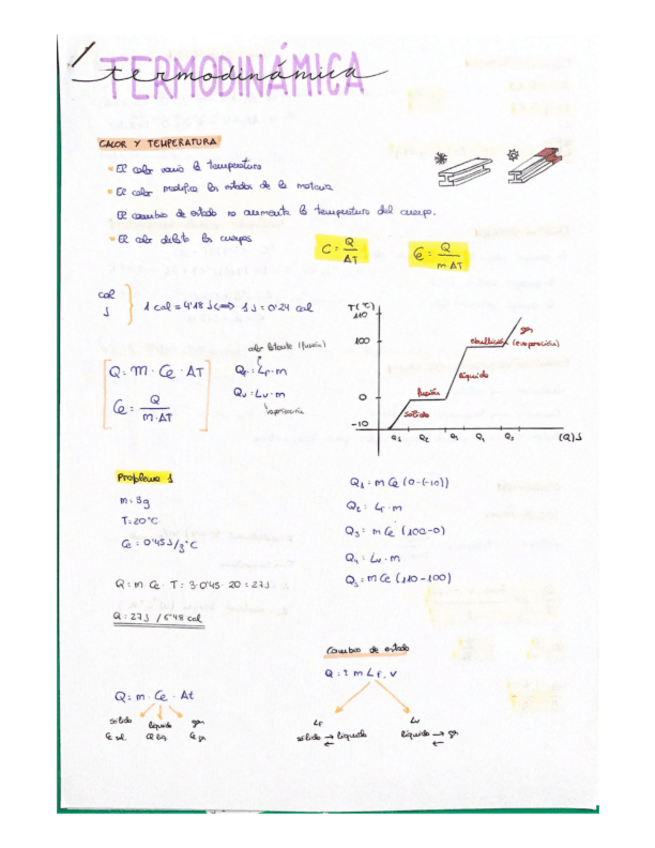 TERMODINÁMICA
termodinámica
CALOR Y TEMPERATURA
El calor varia la temperatura
El calor modifica los estados de la materia
El cambio de estado no aumenta la temperatura del cuerpo.
El calor dilata los cuerpos
C = Q / ΔT
Ce = Q / m ΔT
cal
J
1 cal = 4'18 J <=> 1 J = 0'24 cal
Q = m · Ce · ΔT
Ce = Q / m · ΔT
calor latente (fusión)
Qf = Lf · m
Qv = Lv · m
vaporización
T (°C)
110
100
0
-10
sólido
fusión
líquido
ebullición (evaporación)
gas
Q1 Q2 Q3 Q4 Q5 (Q) J
Problema 1
m = 3g
T = 20°C
Ce = 0'45 J/g°C
Q = m · Ce · T = 3 · 0'45 · 20 = 27J
Q = 27J / 6'48 cal
Q1 = m Ce (0-(-10))
Q2 = Lf · m
Q3 = m Ce (100-0)
Q4 = Lv · m
Q5 = m Ce (110-100)
Cambio de estado
Q = ± m Lf, v
Lf
sólido → líquido
←
Lv
líquido → gas
←
Q = m · Ce · Δt
sólido líquido gas
Ce sol Ce liq Ce gas